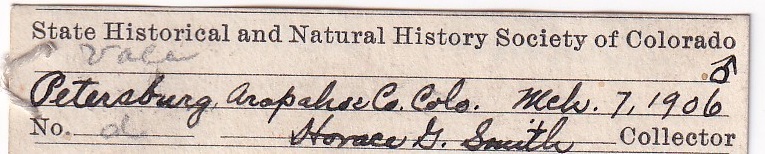 State Historical and Natural History Society of Colorado
♂
Petersburg, Arapahoe Co. Colo. Mch. 7, 1906
No. Horace G. Smith Collector